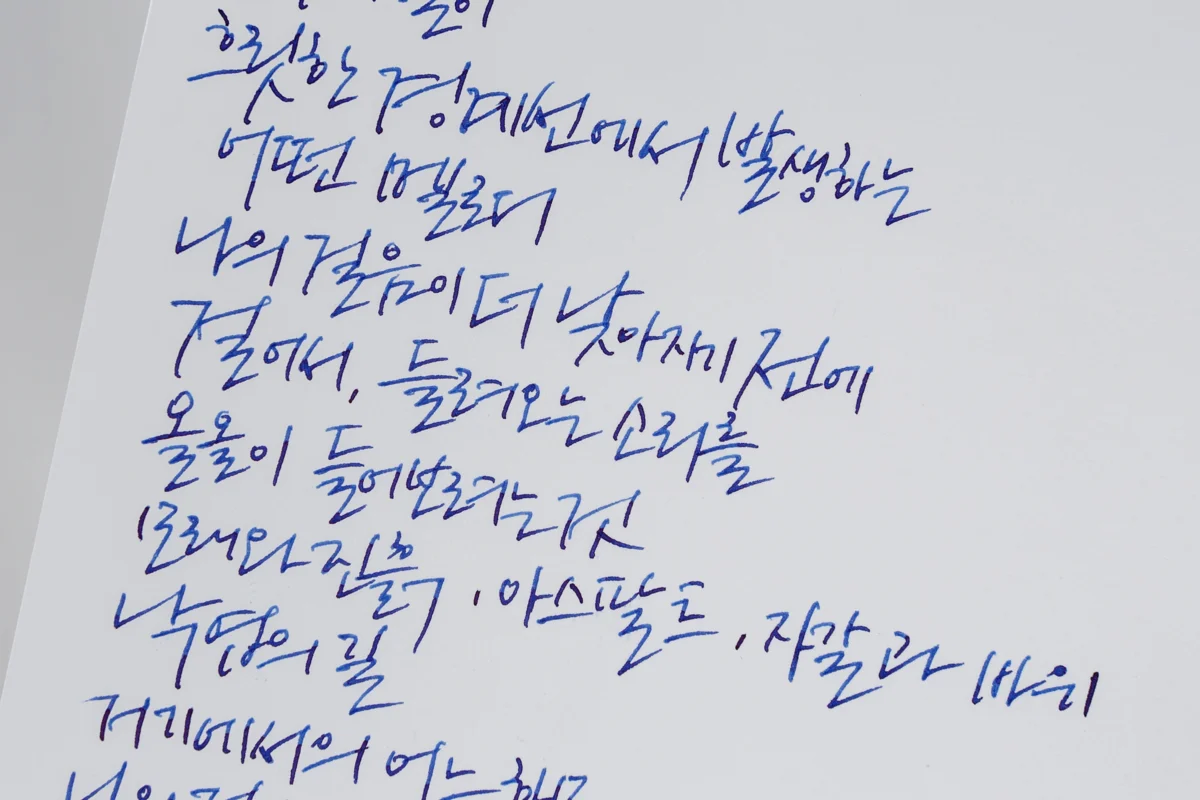 흐릿한 경계선에서 발생하는
어떤 멜로디
나의 걸음이 더 낮아지기 전에
걸어서, 들려오는 소리를
올올이 들어보려는 것
모래와 진흙, 아스팔트, 자갈과 바위
낙엽의 길
저기에서의 어느